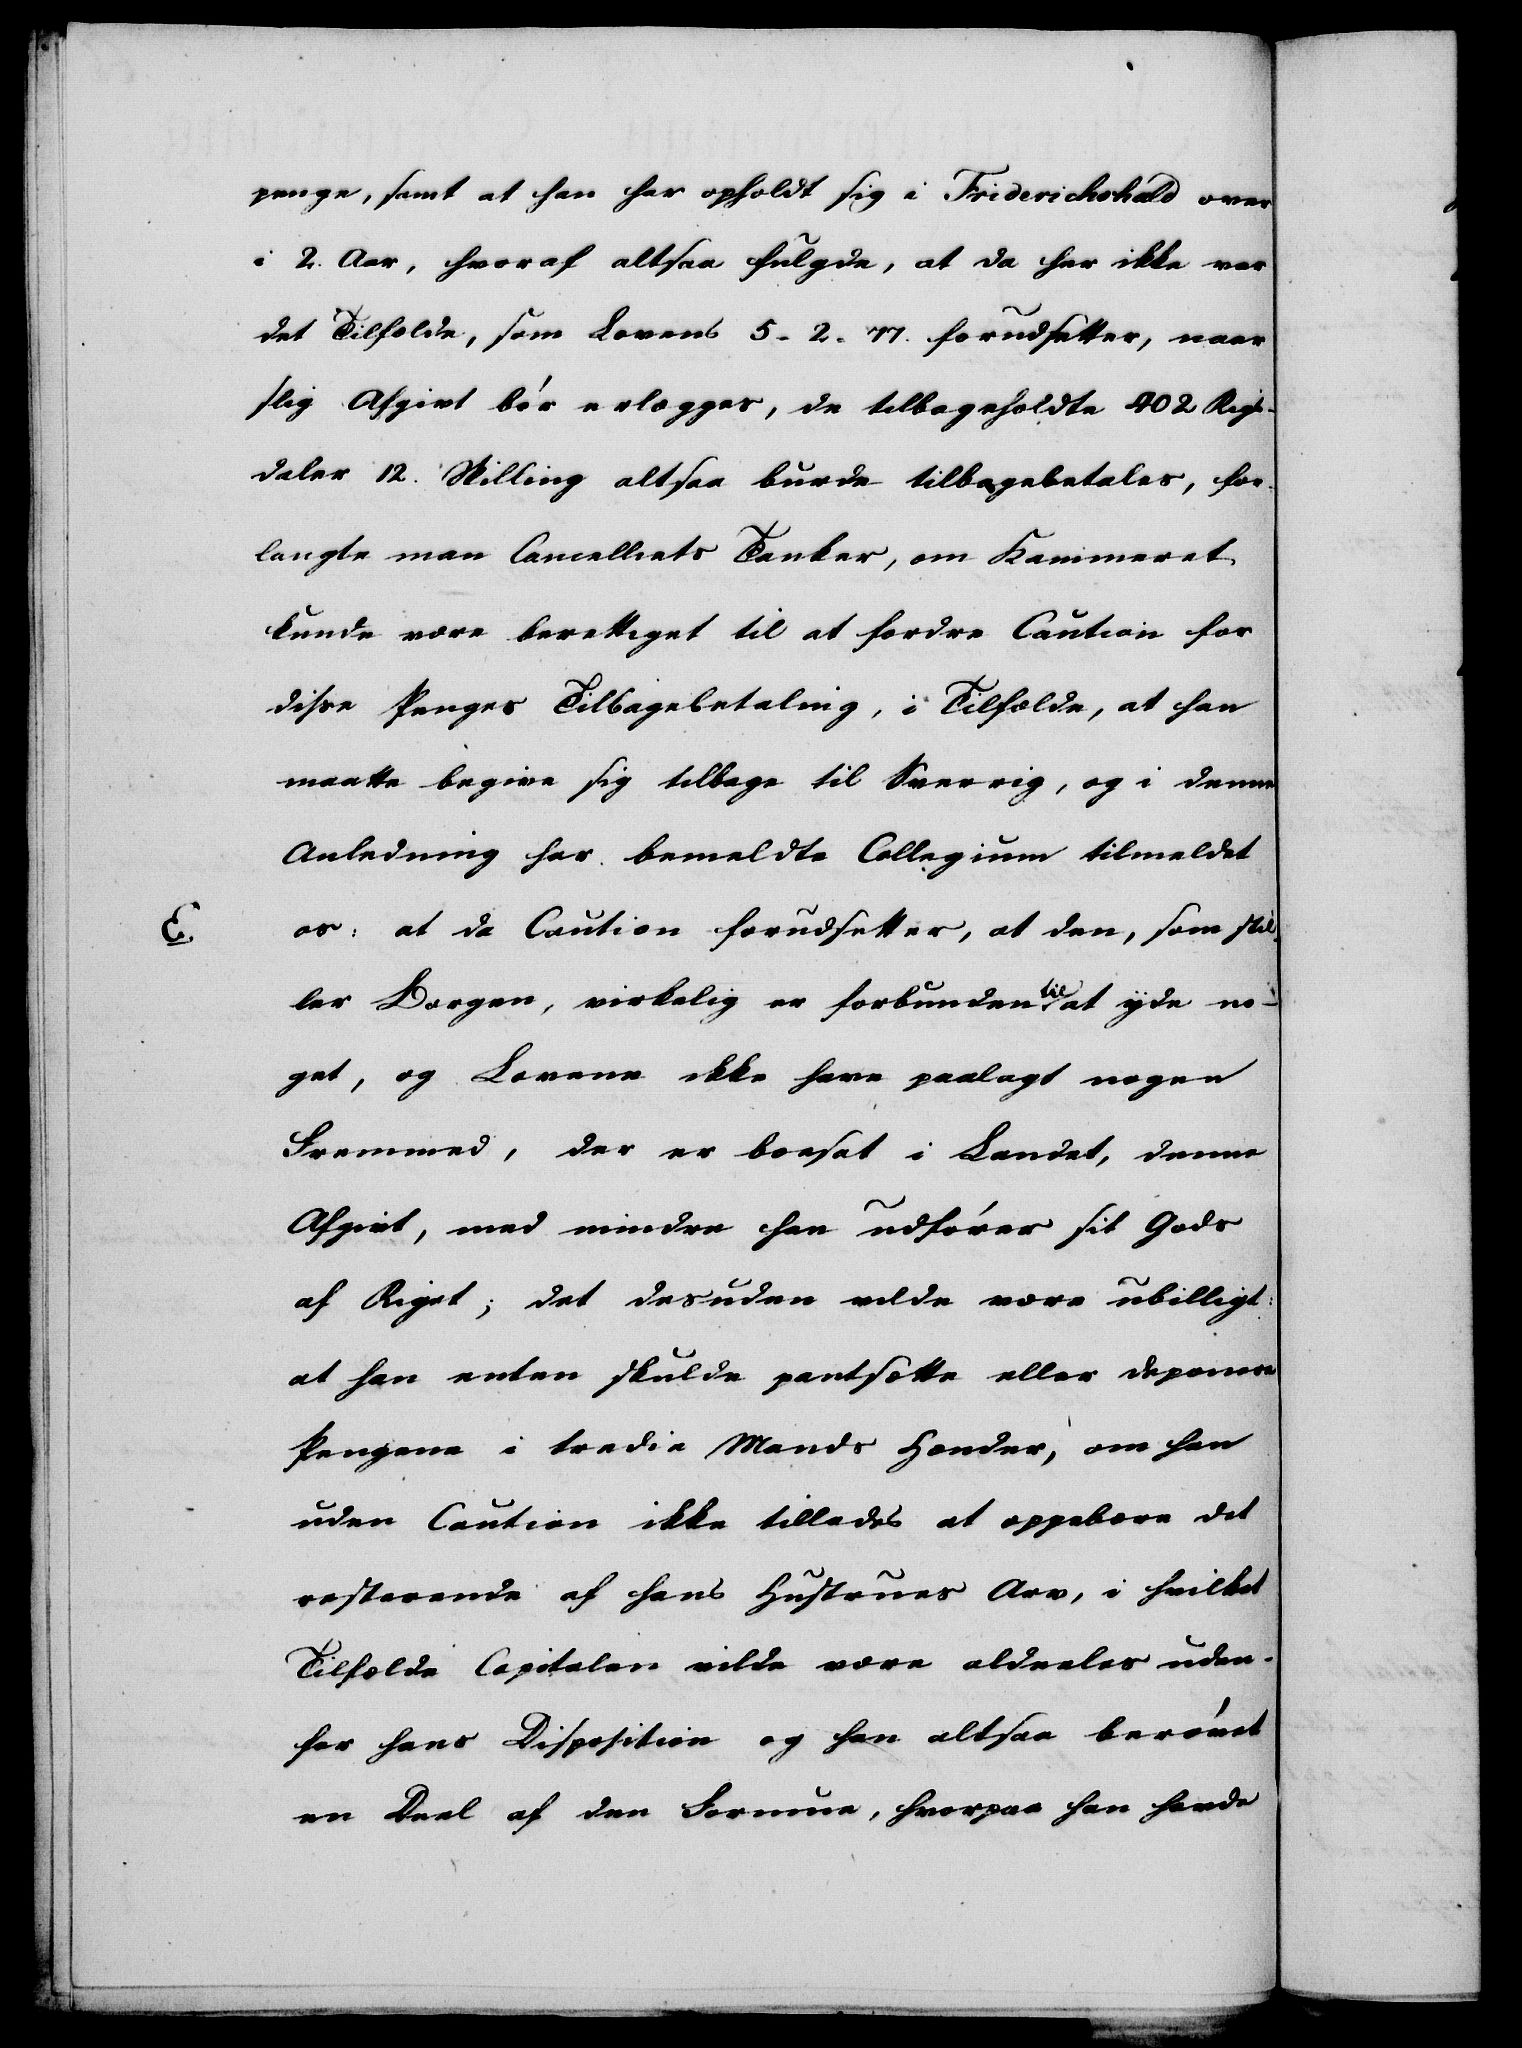 penge, samt at han har opholdt sig i Friderichshald over
i 2. Aar, hvoraf altsaa fulgde, at da her ikke var
det Tilfælde, som Lovens 5-2-77. forudsetter, naar
slig Afgivt bör erlægges, de tilbageholdte 402 Rigs-
daler 12. Skilling altsaa burde tilbagebetales, for-
langte man Cancelliets Tanker, om Kammeret
kunde være berettiget til at fordre Caution for
disse Penges Tilbagebetaling, i Tilfælde, at han
maatte begive sig tilbage til Sverrig, og i denne
Anledning har bemeldte Collegium tilmeldet
E. os: at da Caution forudsetter, at den, som stil-
ler Borgen, virkelig er forbunden til at yde no-
get, og Lovene ikke have paalagt nogen
Fremmed, der er boesat i Landet, denne
Afgivt, med mindre han udförer sit Gods
af Riget; det desuden vilde være ubilligt:
at han enten skulde pantsætte eller deponere
Pengene i tredie Mands Hænder, om han
uden Caution ikke tillades at oppebære det
resterende af hans Hustrues Arv, i hvilket
Tilfælde Capitalen vilde være aldeeles uden-
for hans Disposition og han altsaa berövet
en Deel af den Formue, hvorpaa han havde